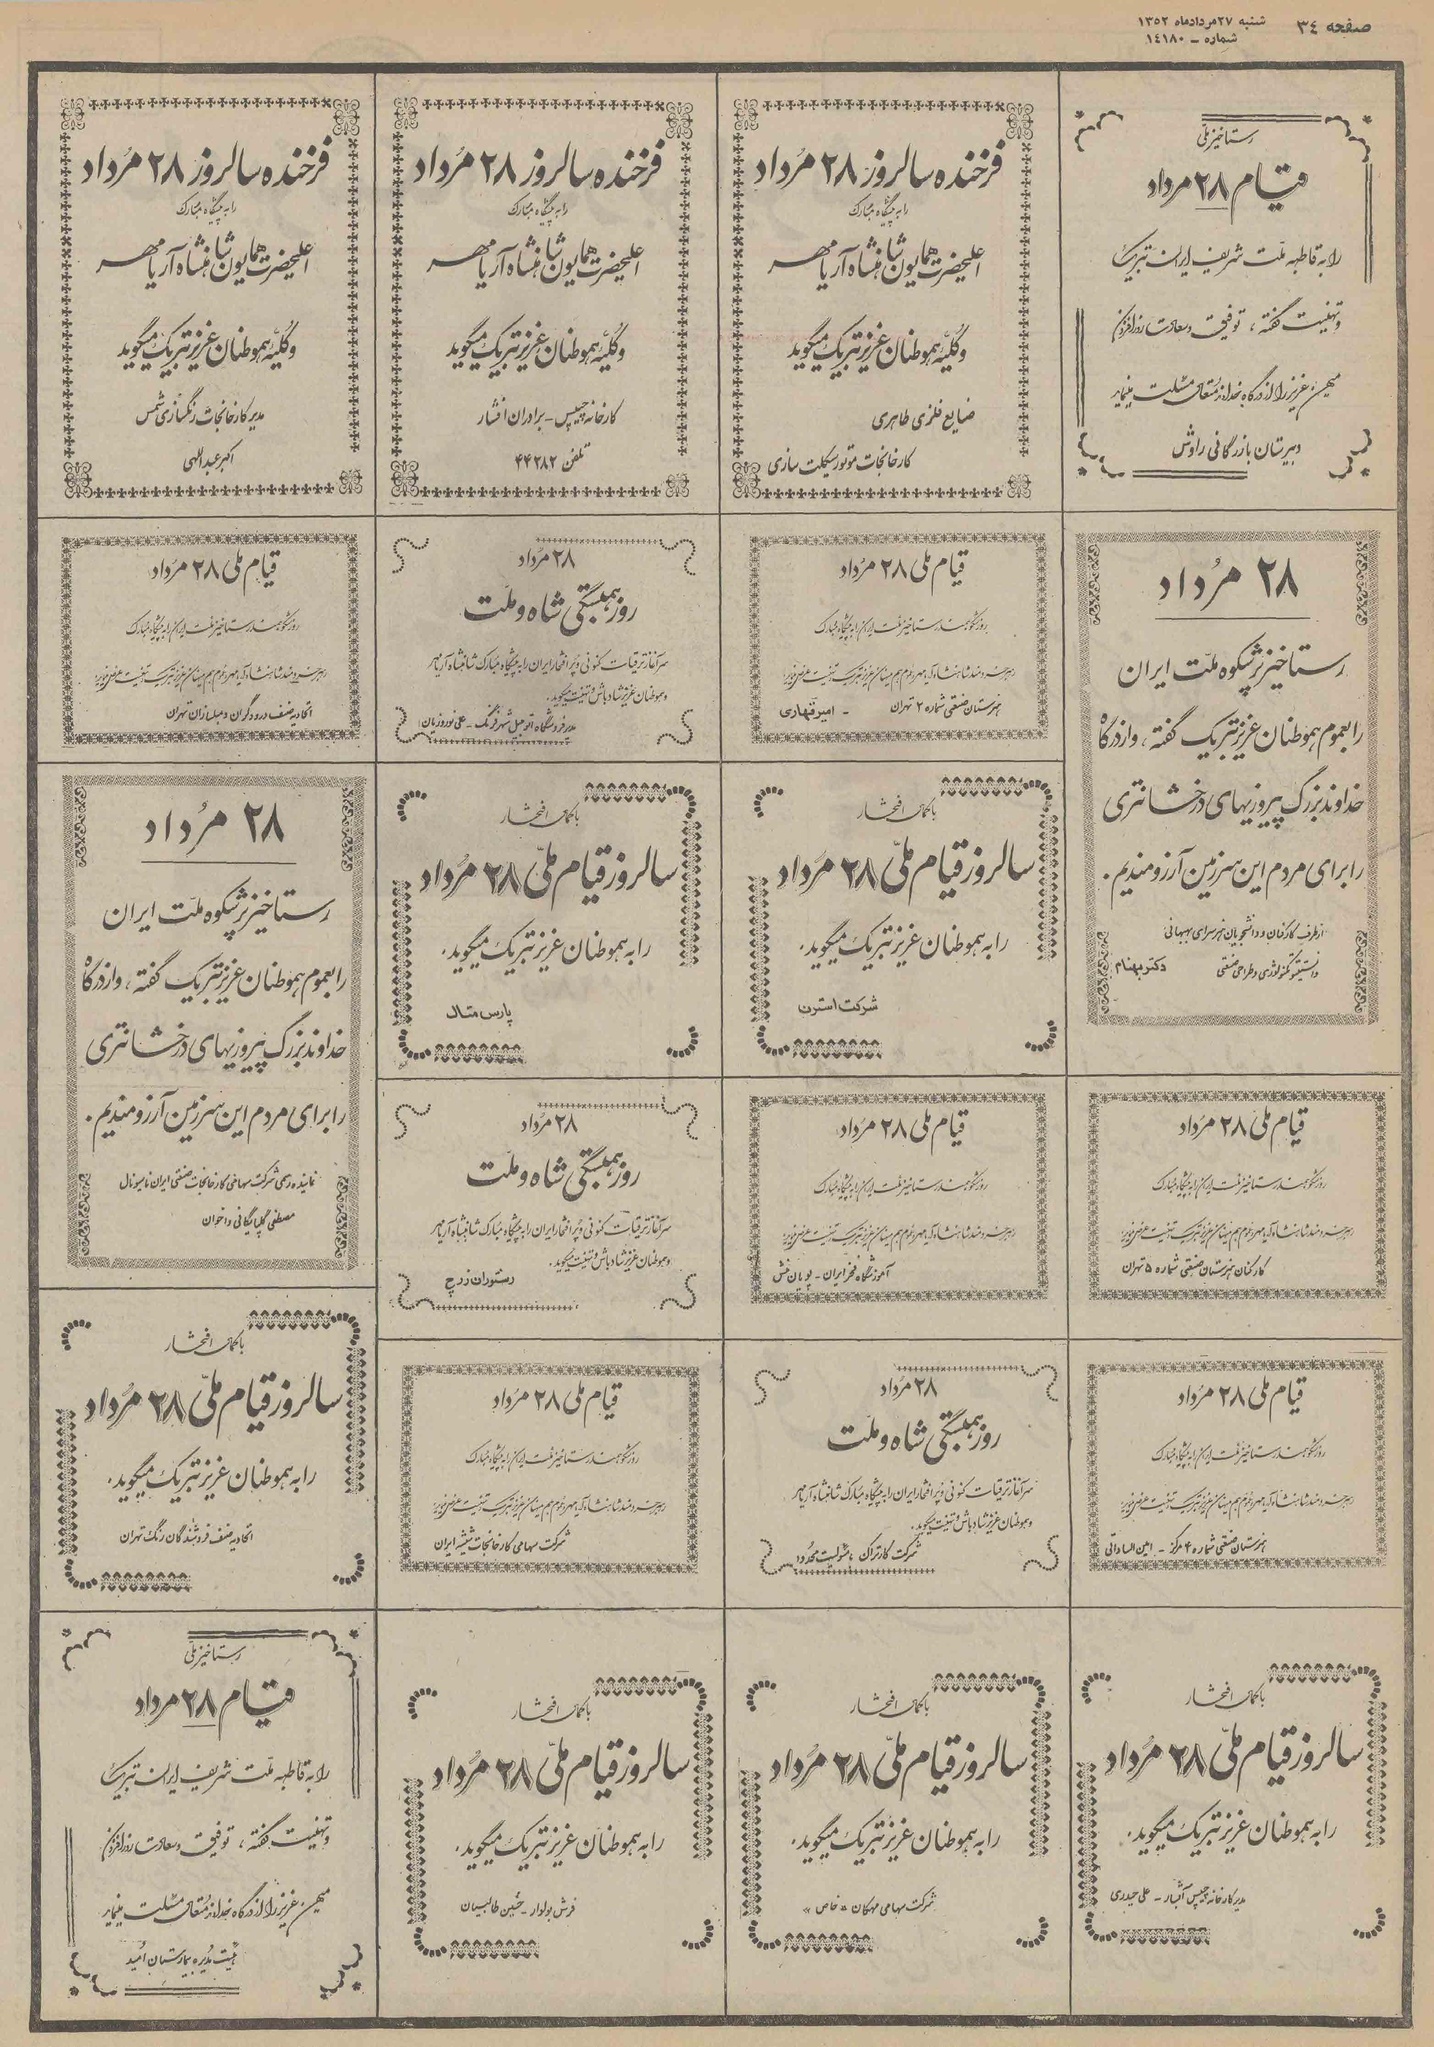 صفحه ۳۴
شنبه ۲۷ مردادماه ۱۳۵۲
شماره – ۱۴۱۸۰
رستاخیز ملّی
قیام ۲۸ مرداد
را به قاطبه ملت شریف ایران تبریک
و تهنیت گفته، توفیق و سعادت روزافزون
میهن عزیز را از درگاه خداوند متعال مسئلت مینماید
دبیرستان بازرگانی راوش
فرخنده سالروز ۲۸ مُرداد
را به پیشگاه مبارک
اعلیحضرت همایون شاهنشاه آریامهر
و کلیّه هموطنان عزیز تبریک میگوید
صنایع فلزی طاهری
کارخانجات موتورسیکلت سازی
فرخنده سالروز ۲۸ مُرداد
را به پیشگاه مبارک
اعلیحضرت همایون شاهنشاه آریامهر
و کلیّه هموطنان عزیز تبریک میگوید
کارخانه چیپس – برادران افشار
تلفن ۴۴۲۸۲
فرخنده سالروز ۲۸ مُرداد
را به پیشگاه مبارک
اعلیحضرت همایون شاهنشاه آریامهر
و کلیّه هموطنان عزیز تبریک میگوید
مدیر کارخانجات رنگسازی شمس
اکبر عبداللهی
۲۸ مُرداد
رستاخیز پُرشکوه ملّت ایران
را بعموم هموطنان عزیز تبریک گفته، و از درگاه
خداوند بزرگ پیروزیهای درخشانتری
را برای مردم این سرزمین آرزومندیم.
از طرف کارکنان و دانشجویان هنرسرای بهبهانی
و انستیتو تکنولوژی و طراحی صنعتی دکتر بهنام
قیام ملی ۲۸ مرداد
روز شکوهمند رستاخیز ملت ایران را به پیشگاه مبارک
رهبر خردمند شاهنشاه آریامهر و عموم هم میهنان عزیز تبریک و تهنیت عرض مینماید
هنرستان صنعتی شماره ۲ تهران – امیر قهاری
۲۸ مُرداد
روز همبستگی شاه و ملّت
سرآغاز ترقیات کنونی و پُر افتخار ایران را به پیشگاه مبارک شاهنشاه آریامهر
و هموطنان عزیز شادباش و تهنیت میگوید.
مدیر فروشگاه اتومبیل شهر فرنگ – علی نوروزیان
قیام ملی ۲۸ مرداد
روز شکوهمند رستاخیز ملت ایران را به پیشگاه مبارک
رهبر خردمند شاهنشاه آریامهر و عموم هم میهنان عزیز تبریک و تهنیت عرض مینماید
اتحادیه صنف درودگران و مبلسازان تهران
با کمال افتخار
سالروز قیام ملّی ۲۸ مُرداد
را به هموطنان عزیز تبریک میگوید.
شرکت استرن
با کمال افتخار
سالروز قیام ملّی ۲۸ مُرداد
را به هموطنان عزیز تبریک میگوید.
پارس متال
۲۸ مُرداد
رستاخیز پُرشکوه ملّت ایران
را بعموم هموطنان عزیز تبریک گفته، و از درگاه
خداوند بزرگ پیروزیهای درخشانتری
را برای مردم این سرزمین آرزومندیم.
نماینده رسمی شرکت سهامی کارخانجات صنعتی ایران ناسیونال
مصطفی گلپایگانی و اخوان
قیام ملی ۲۸ مرداد
روز شکوهمند رستاخیز ملت ایران را به پیشگاه مبارک
رهبر خردمند شاهنشاه آریامهر و عموم هم میهنان عزیز تبریک و تهنیت عرض مینماید
کارکنان هنرستان صنعتی شماره ۵ تهران
قیام ملی ۲۸ مرداد
روز شکوهمند رستاخیز ملت ایران را به پیشگاه مبارک
رهبر خردمند شاهنشاه آریامهر و عموم هم میهنان عزیز تبریک و تهنیت عرض مینماید
آموزشگاه فخر ایران –
۲۸ مُرداد
روز همبستگی شاه و ملّت
سرآغاز ترقیات کنونی و پُر افتخار ایران را به پیشگاه مبارک شاهنشاه آریامهر
و هموطنان عزیز شادباش و تهنیت میگوید.
رستوران
با کمال افتخار
سالروز قیام ملّی ۲۸ مُرداد
را به هموطنان عزیز تبریک میگوید.
اتحادیه صنف فروشندگان رنگ تهران
قیام ملی ۲۸ مرداد
روز شکوهمند رستاخیز ملت ایران را به پیشگاه مبارک
رهبر خردمند شاهنشاه آریامهر و عموم هم میهنان عزیز تبریک و تهنیت عرض مینماید
هنرستان صنعتی شماره ۴ مرکز – امین الساداتی
۲۸ مُرداد
روز همبستگی شاه و ملّت
سرآغاز ترقیات کنونی و پُر افتخار ایران را به پیشگاه مبارک شاهنشاه آریامهر
و هموطنان عزیز شادباش و تهنیت میگوید.
شرکت کارتراکن با مسئولیت محدود
قیام ملی ۲۸ مرداد
روز شکوهمند رستاخیز ملت ایران را به پیشگاه مبارک
رهبر خردمند شاهنشاه آریامهر و عموم هم میهنان عزیز تبریک و تهنیت عرض مینماید
شرکت سهامی کارخانجات شیشه ایران
با کمال افتخار
سالروز قیام ملّی ۲۸ مُرداد
را به هموطنان عزیز تبریک میگوید.
مدیر کارخانه چیپس – علی حیدری
با کمال افتخار
سالروز قیام ملّی ۲۸ مُرداد
را به هموطنان عزیز تبریک میگوید.
شرکت سهامی مهکان «خاص»
با کمال افتخار
سالروز قیام ملّی ۲۸ مُرداد
را به هموطنان عزیز تبریک میگوید.
فرش بولوار – حسین طالبیان
رستاخیز ملّی
قیام ۲۸ مرداد
را به قاطبه ملت شریف ایران تبریک
و تهنیت گفته، توفیق و سعادت روزافزون
میهن عزیز را از درگاه خداوند متعال مسئلت مینماید
هیئت مدیره بیمارستان امید